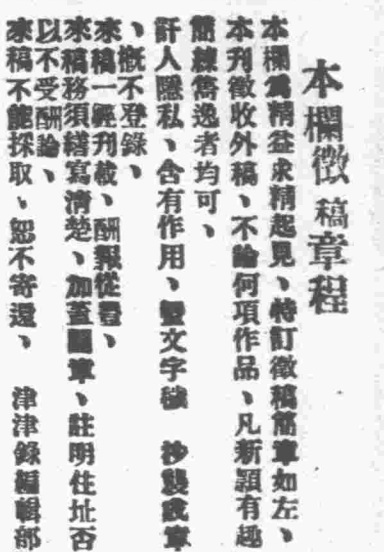 本欄徵稿章程
本欄爲精益求精起見、特訂徵稿簡章如左、
本刊徵收外稿、不論何項作品、凡新頴有趣
簡練雋逸者均可、
訐人隱私、含有作用、文字 抄襲
、槪不登錄、
來稿一經刊載、酬報從豐、
來稿務須繕寫清楚、加蓋圖章、註明住址否
以不受酬論、
來稿不能採取、恕不寄還、 津津錄編輯部